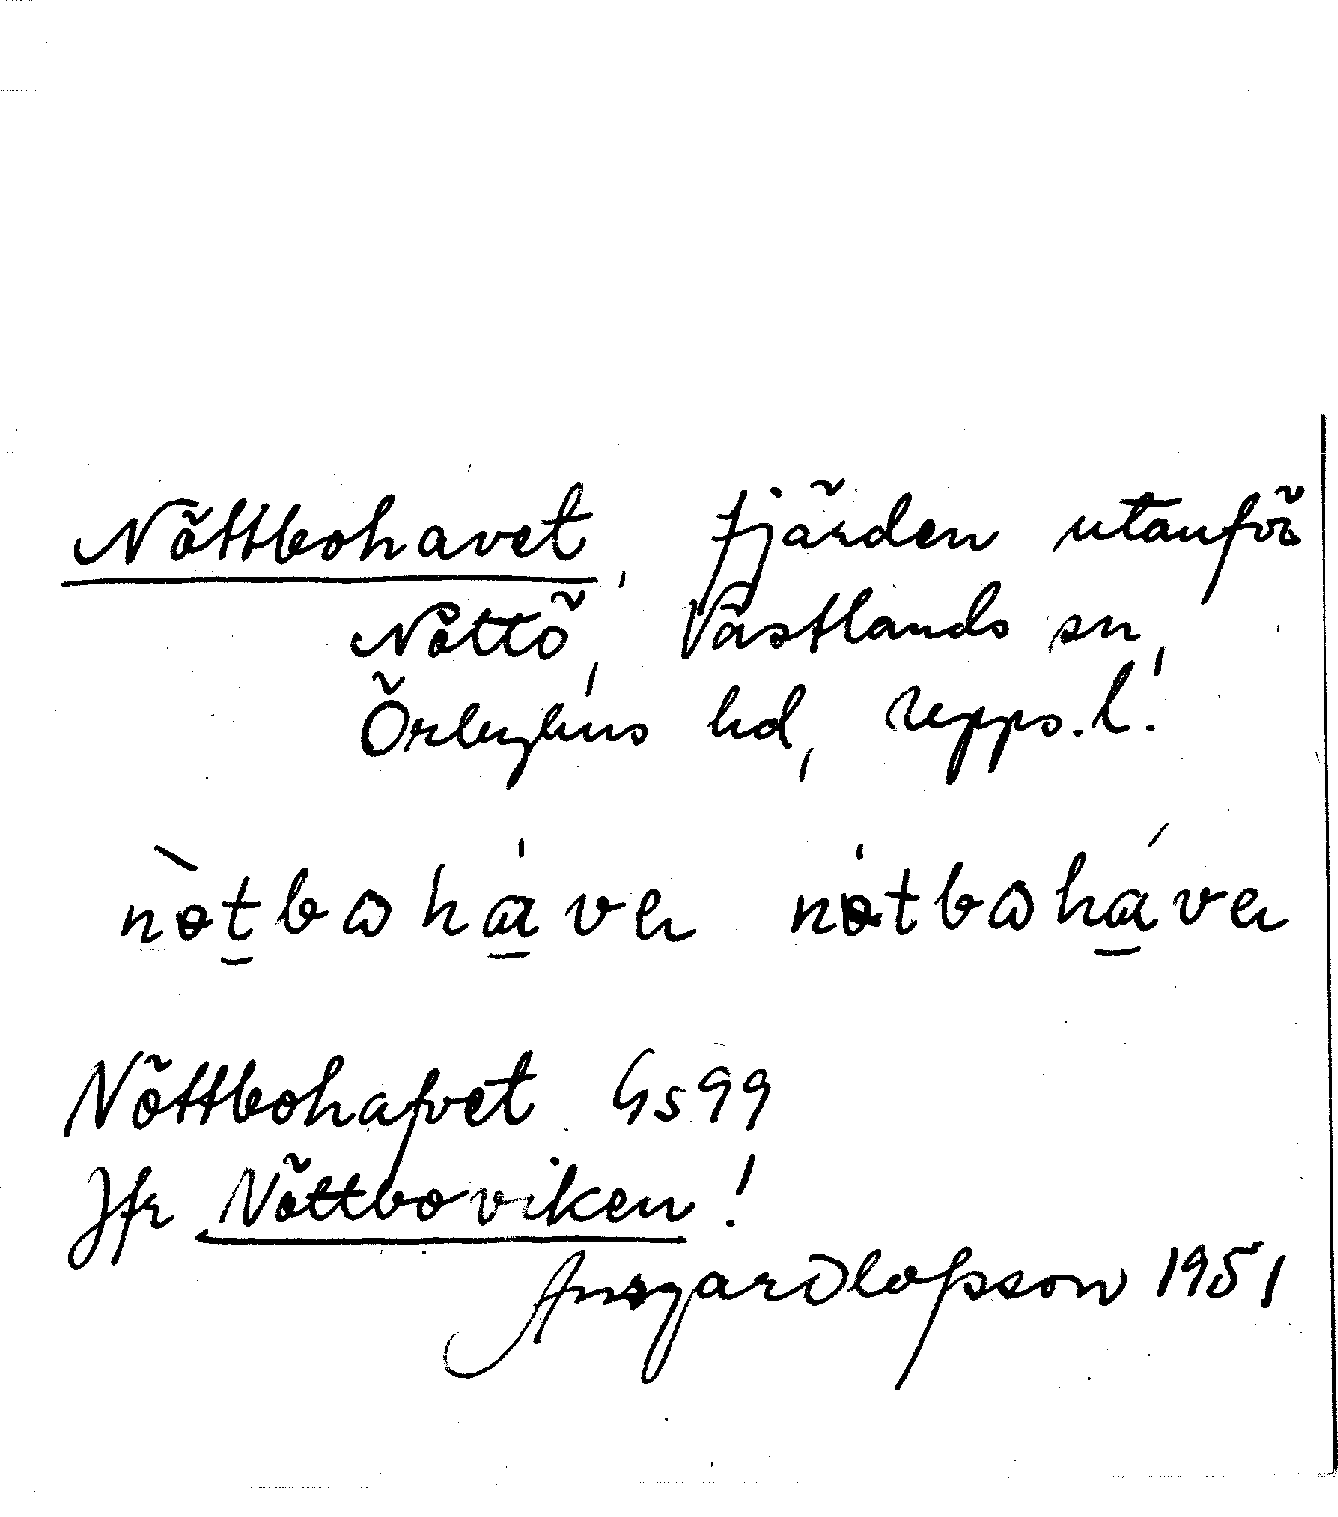 Nöttbohavet, fjärden utanför
Nöttö, Västlands sn,
Örbyhus hd, Upps.l.
Nöttbohafvet Gs 99
Jfr Nöttboviken!
Ansgar Olofsson 1951